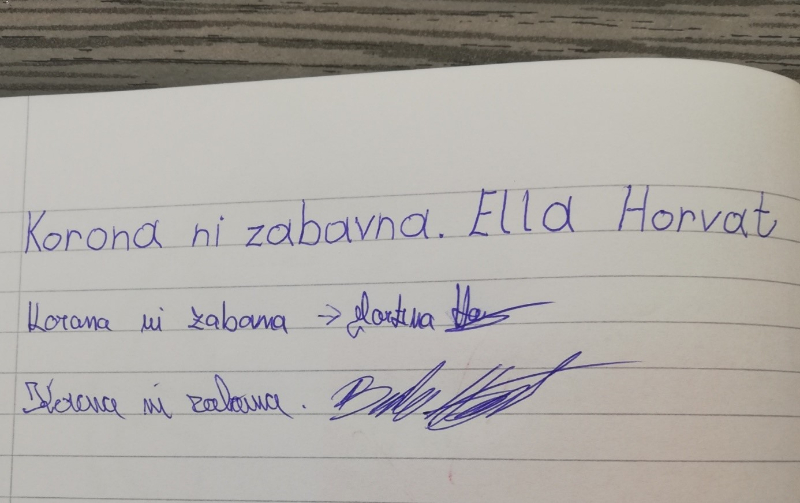 Korona ni zabavna. Ella Horvat
Korana ni zabana → Martina
Korona ni zabavna.